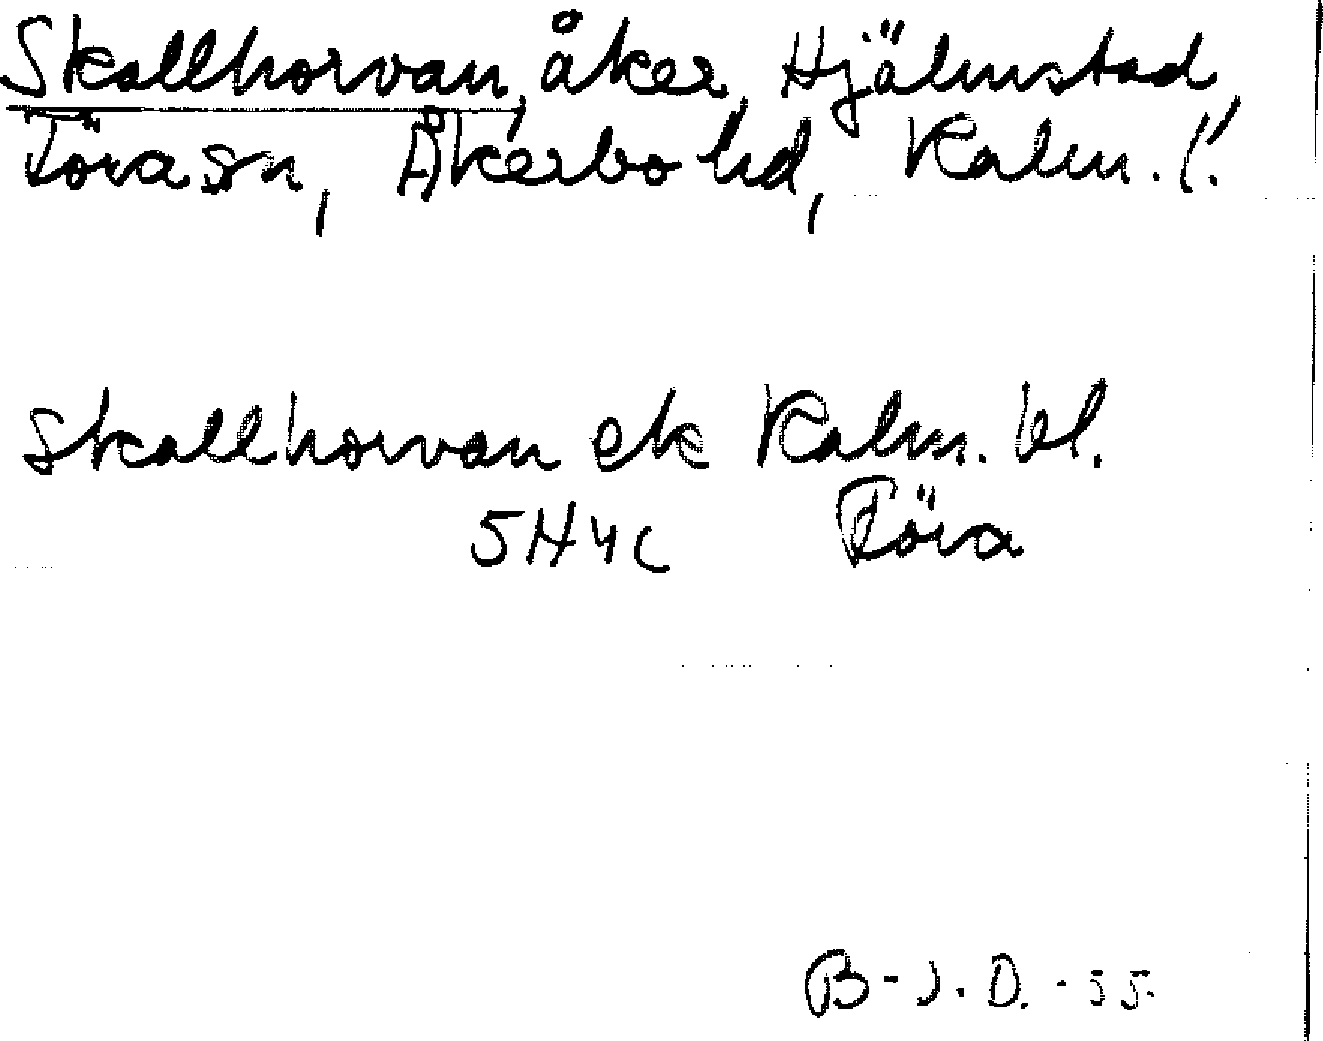 Skallhorvan, åker, Hjälmstad,
Töva sn, Åkerbo hd, Kalm. l.
Skallhorvan ek Kalm. bl.
5H4c Föra
B-J. D. -55.